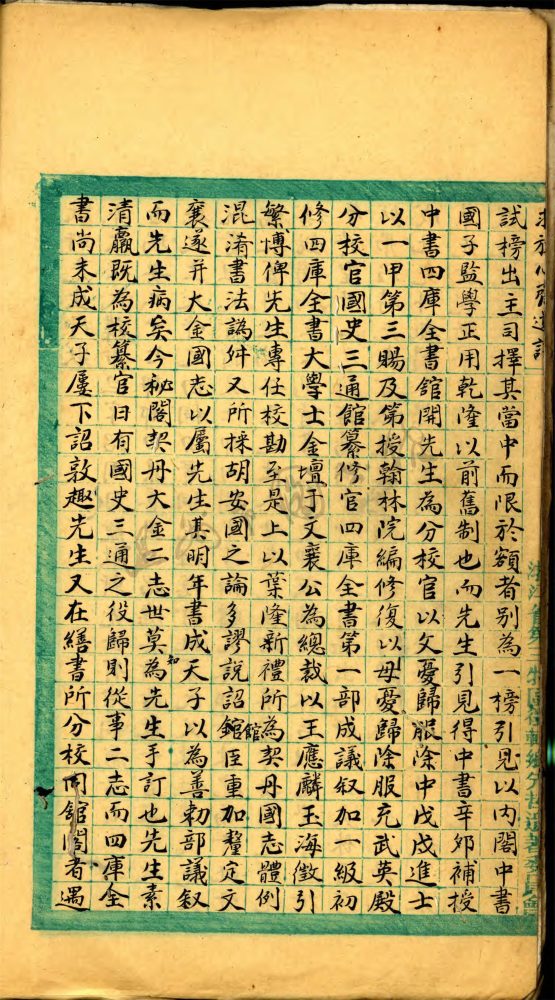 試榜出主司擇其當中而限於額者別為一榜引見以內閣中書
國子監學正用乾隆以前舊制也而先生引見得中書辛夘補授
中書四庫全書館開先生為分校官以父憂歸服除中戊戌進士
以一甲第三賜及第授翰林院編修復以母憂歸除服充武英殿
分校官國史三通館纂修官四庫全書第一部成議叙加一級初
修四庫全書大學士金壇于文襄公為總裁以王應麟玉海徵引
繁博俾先生專任校勘至是上以葉隆新禮所為契丹國志體例
混淆書法譌舛又所採胡安國之論多謬說詔錧館臣重加釐定文
襄遂并大金國志以屬先生其明年書成天子以為善勅部議叙
而先生病矣今秘閣契丹大金二志世莫為知先生手訂也先生素
清羸既為校纂官日有國史三通之役歸則從事二志而四庫全
書尚未成天子屢下詔敦趣先生又在繕書所分校同舘閣者遇